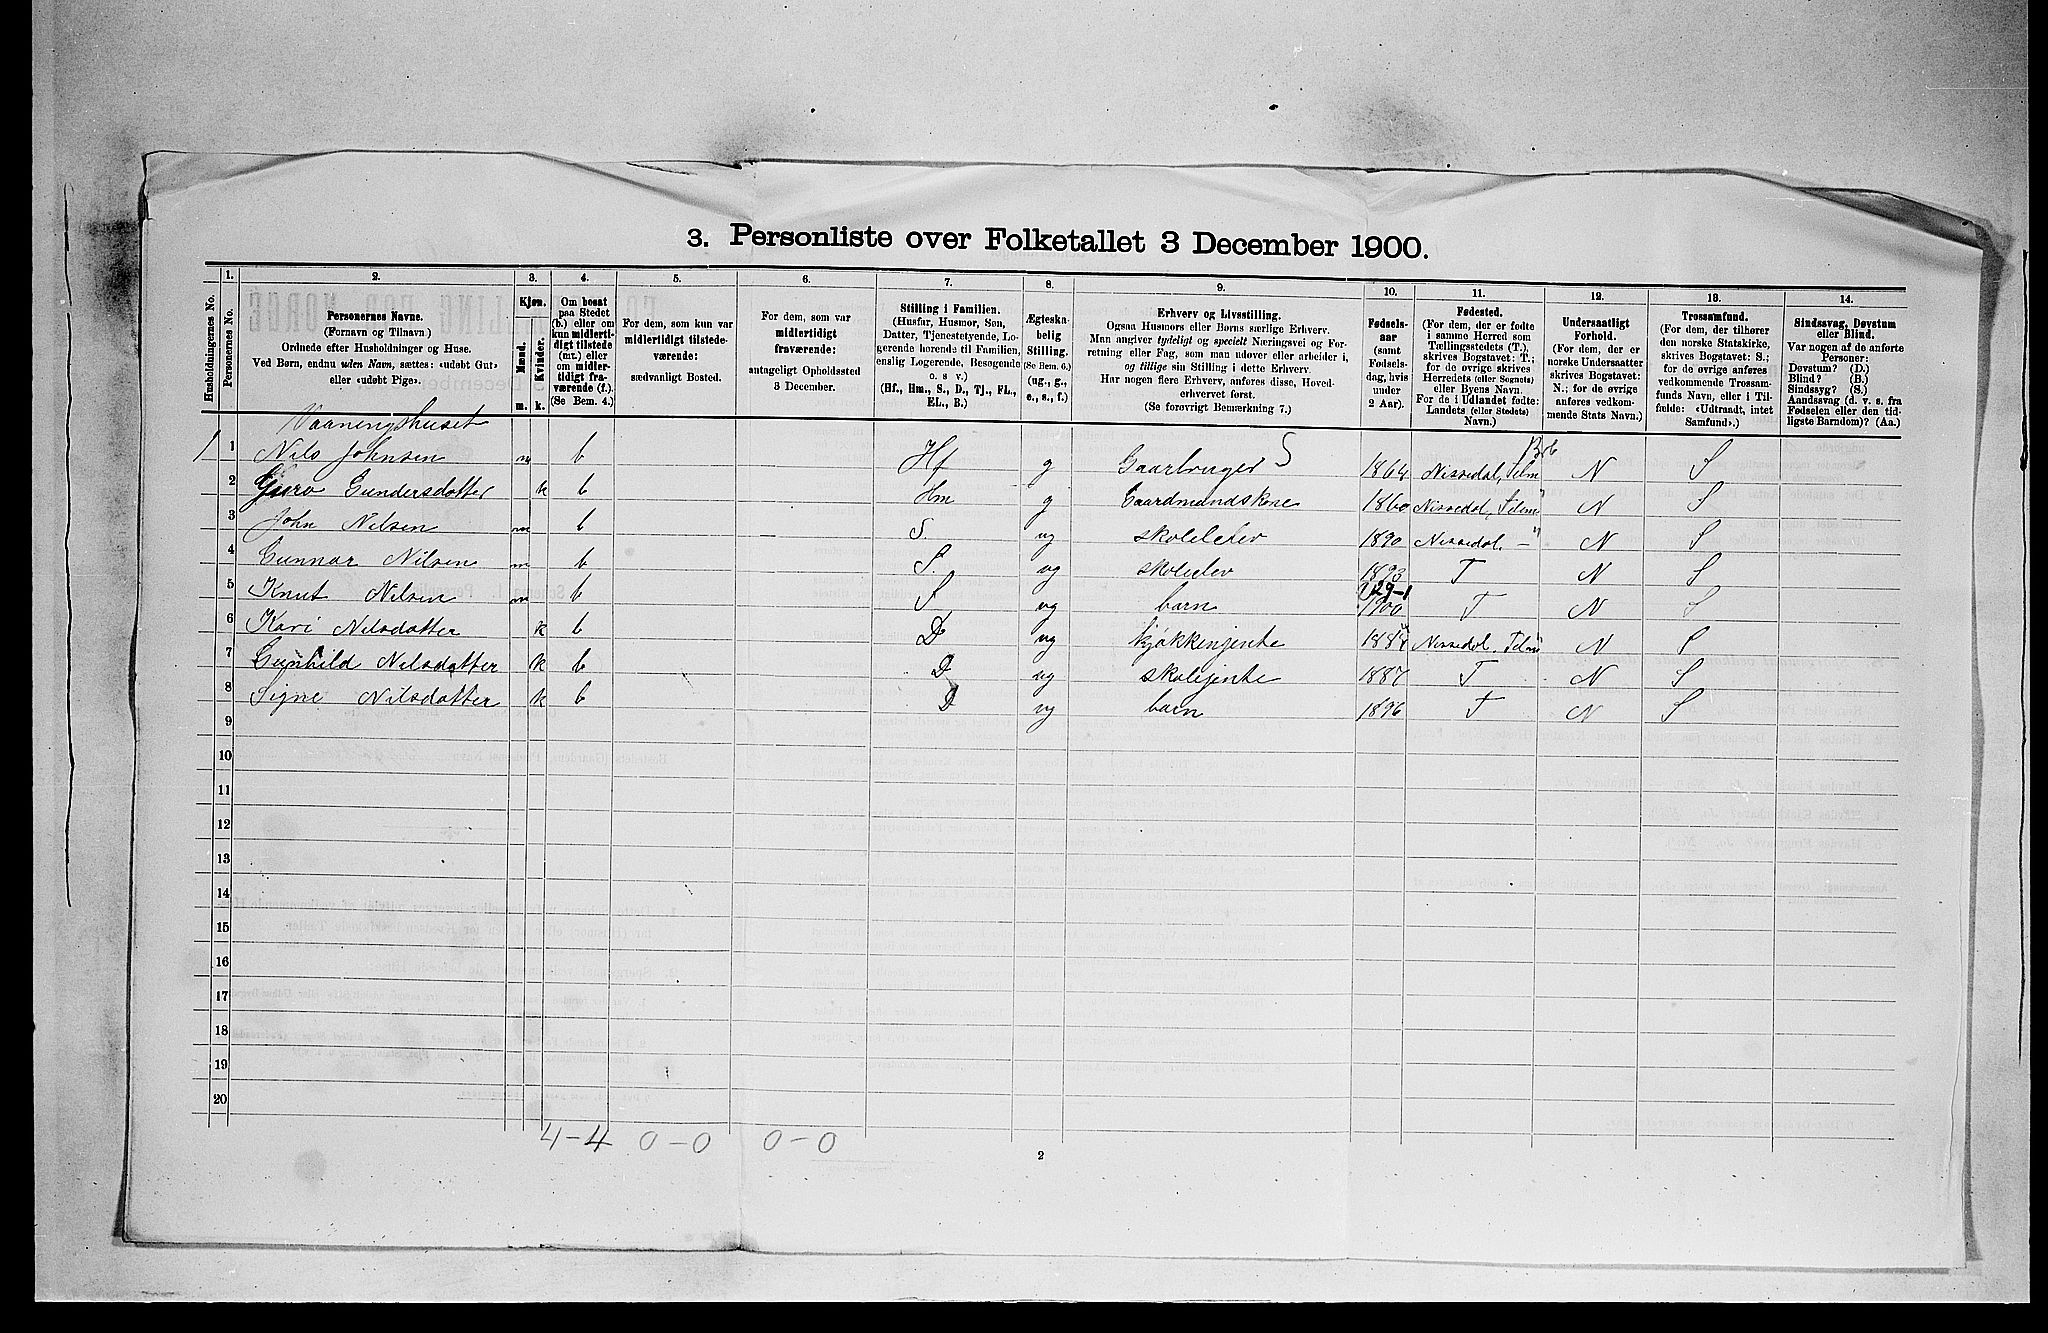 3. Personliste over Folketallet 3 December 1900.
Husholdningernes No.
1.
Personernes No.
2.
Personernes Navne.
(Fornavn og Tilnavn)
Ordnede efter Husholdninger og Huse.
Ved Børn, endnu uden Navn, sættes: «udøbt Gut»
eller «udøbt Pige».
3.
Kjøn.
Mænd.
Kvinder.
m. k.
4.
Om bosat
paa Stedet
(b.) eller om
kun midlerti-
digt tilstede
(mt.) eller
om midler-
tidigt fra-
værende (f.).
(Se Bem. 4.)
5.
For dem, som kun var
midlertidigt tilstede-
værende:
sædvanligt Bosted.
6.
For dem, som var
midlertidigt
fraværende:
antageligt Opholdssted
3 December.
7.
Stilling i Familien.
(Husfar, Husmor, Søn,
Datter, Tjenestetyende, Lo-
gerende hørende til Familien,
enslig Logerende, Besøgende
o. s. v.)
(Hf., Hm., S., D., Tj., FL.,
EL., B.)
8.
Ægteska-
belig
Stilling.
(Se Bem. 6.)
(ug., g.,
e., s., f.)
9.
Erhverv og Livsstilling.
Ogsaa Husmors eller Børns særlige Erhverv.
Man angiver tydeligt og specielt Næringsvei og For-
retning eller Fag, som man udøver eller arbeider i,
og tillige sin Stilling i dette Erhverv.
Har nogen flere Erhverv, anføres disse, Hoved-
erhvervet først.
(Se forøvrigt Bemærkning 7.)
10.
Fødsels-
aar
(samt
Fødsels-
dag, hvis
under
2 Aar).
11.
Fødested.
(For dem, der er fødte
i samme Herred som
Tællingsstedets (T.),
skrives Bogstavet: T.;
for de øvrige skrives
Herredets (eller Sognets)
eller Byens Navn.
For de i Udlandet fødte:
Landets (eller Stedets)
Navn.)
12.
Undersaatligt
Forhold.
(For dem, der er
norske Undersaatter
skrives Bogstavet:
N.; for de øvrige
anføres vedkom-
mende Stats Navn.)
13.
Trossamfund.
(For dem, der tilhører
den norske Statskirke,
skrives Bogstavet: S.;
for de øvrige anføres
vedkommende Trossam-
funds Navn, eller i Til-
fælde: «Udtraadt, intet
Samfund».)
14.
Sindssvag, Døvstum
eller Blind.
Var nogen af de anførte
Personer:
Døvstum? (D.)
Blind? (B.)
Sindssyg? (S.)
Aandssvag (d. v. s. fra
Fødselen eller den tid-
ligste Barndom)? (Aa.)
Vaaningshuset
1 1 Nils Johnsen m b Hf g Gaarbruger S 1864 Nissedal, Telm N S
2 Guro Gundersdatter k b Hm g Gaardmandskone 1860 Nissedal, Telm N S
3 John Nilsen m b S. ug skoleelev 1890 Nissedal, —" N S
4 Gunnar Nilsen m b S. ug skoleelev 1893 T N S
5 Knut Nilsen m b S ug barn 29-1 1900 T N S
6 Kari Nilsdatter k b D ug kjøkkenjente 1884 Nissedal, Telm N S
7 Gunhild Nilsdatter k b D ug skolejente 1887 T N S
8 Signe Nilsdatter k b D ug barn 1896 T N S
9
10
11
12
13
14
15
16
17
18
19
20
4-4 0-0 0-0
2